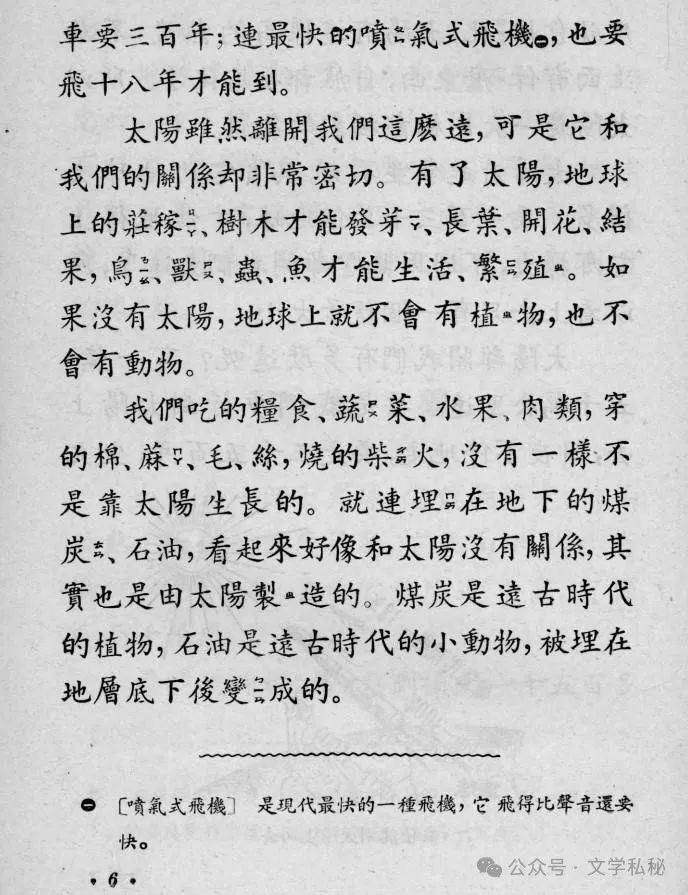 車要三百年；連最快的噴ㄆㄣ氣式飛機㊀，也要
飛十八年才能到。
太陽雖然離開我們這麽遠，可是它和
我們的關係却非常密切。有了太陽，地球
上的莊稼ㄐㄧㄚ、樹木才能發芽ㄧㄚ、長葉、開花、結
果，鳥ㄋㄧㄠ、獸ㄕㄡ、蟲、魚才能生活、繁ㄈㄢ殖ㄓ。如
果沒有太陽，地球上就不會有植ㄓ物，也不
會有動物。
我們吃的糧食、蔬ㄕㄨ菜、水果、肉類，穿
的棉、蔴ㄇㄚ、毛、絲，燒的柴ㄔㄞ火，沒有一樣不
是靠太陽生長的。就連埋ㄇㄞ在地下的煤
炭ㄊㄢ、石油，看起來好像和太陽沒有關係，其
實也是由太陽製ㄓ造的。煤炭是遠古時代
的植物，石油是遠古時代的小動物，被埋在
地層底下後變ㄅㄧㄢ成的。
㊀ [噴氣式飛機] 是現代最快的一種飛機，它飛得比聲音還要
快。
·6·
公众号·文学私秘